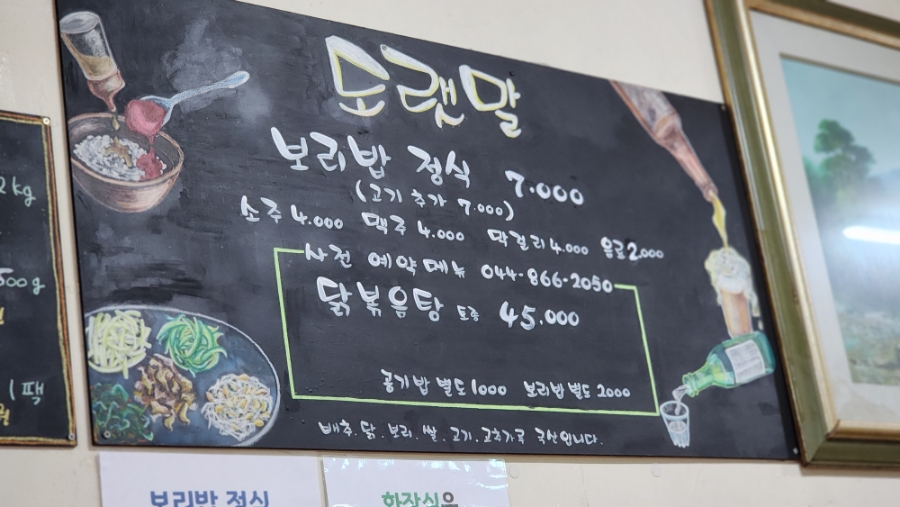 도랫말
보리밥 정식 7.000
(고기 추가 7.000)
소주 4.000 맥주 4.000 막걸리 4.000 음료 2.000
사전 예약 메뉴 044-866-2050
닭볶음탕 토종 45.000
공기밥 별도 1000 보리밥 별도 2000
배추. 닭. 보리. 쌀. 고기. 고추가루 국산입니다.
2kg
500g
1팩
원
보리밥 정식
화장실은